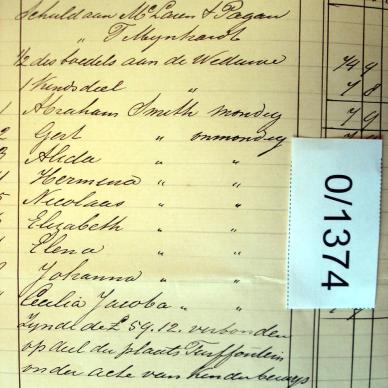 Schuld aan McLaren & Pagan
" T Meynhardt
1/2 des boedels aan de Weduwe 749
1 Kindsdeel " 78
1 Abraham Smith mondig 79
2 Gert " onmondig
3 Alida " "
4 Hermina " "
5 Nicolaas " "
Elizabeth " "
Elena " "
Johanna " "
Cecilia Jacoba " "
Zynde de £59.12. verbonden
op deel der plaats Truffontein
onder acte van Kinderbewys
0/1374